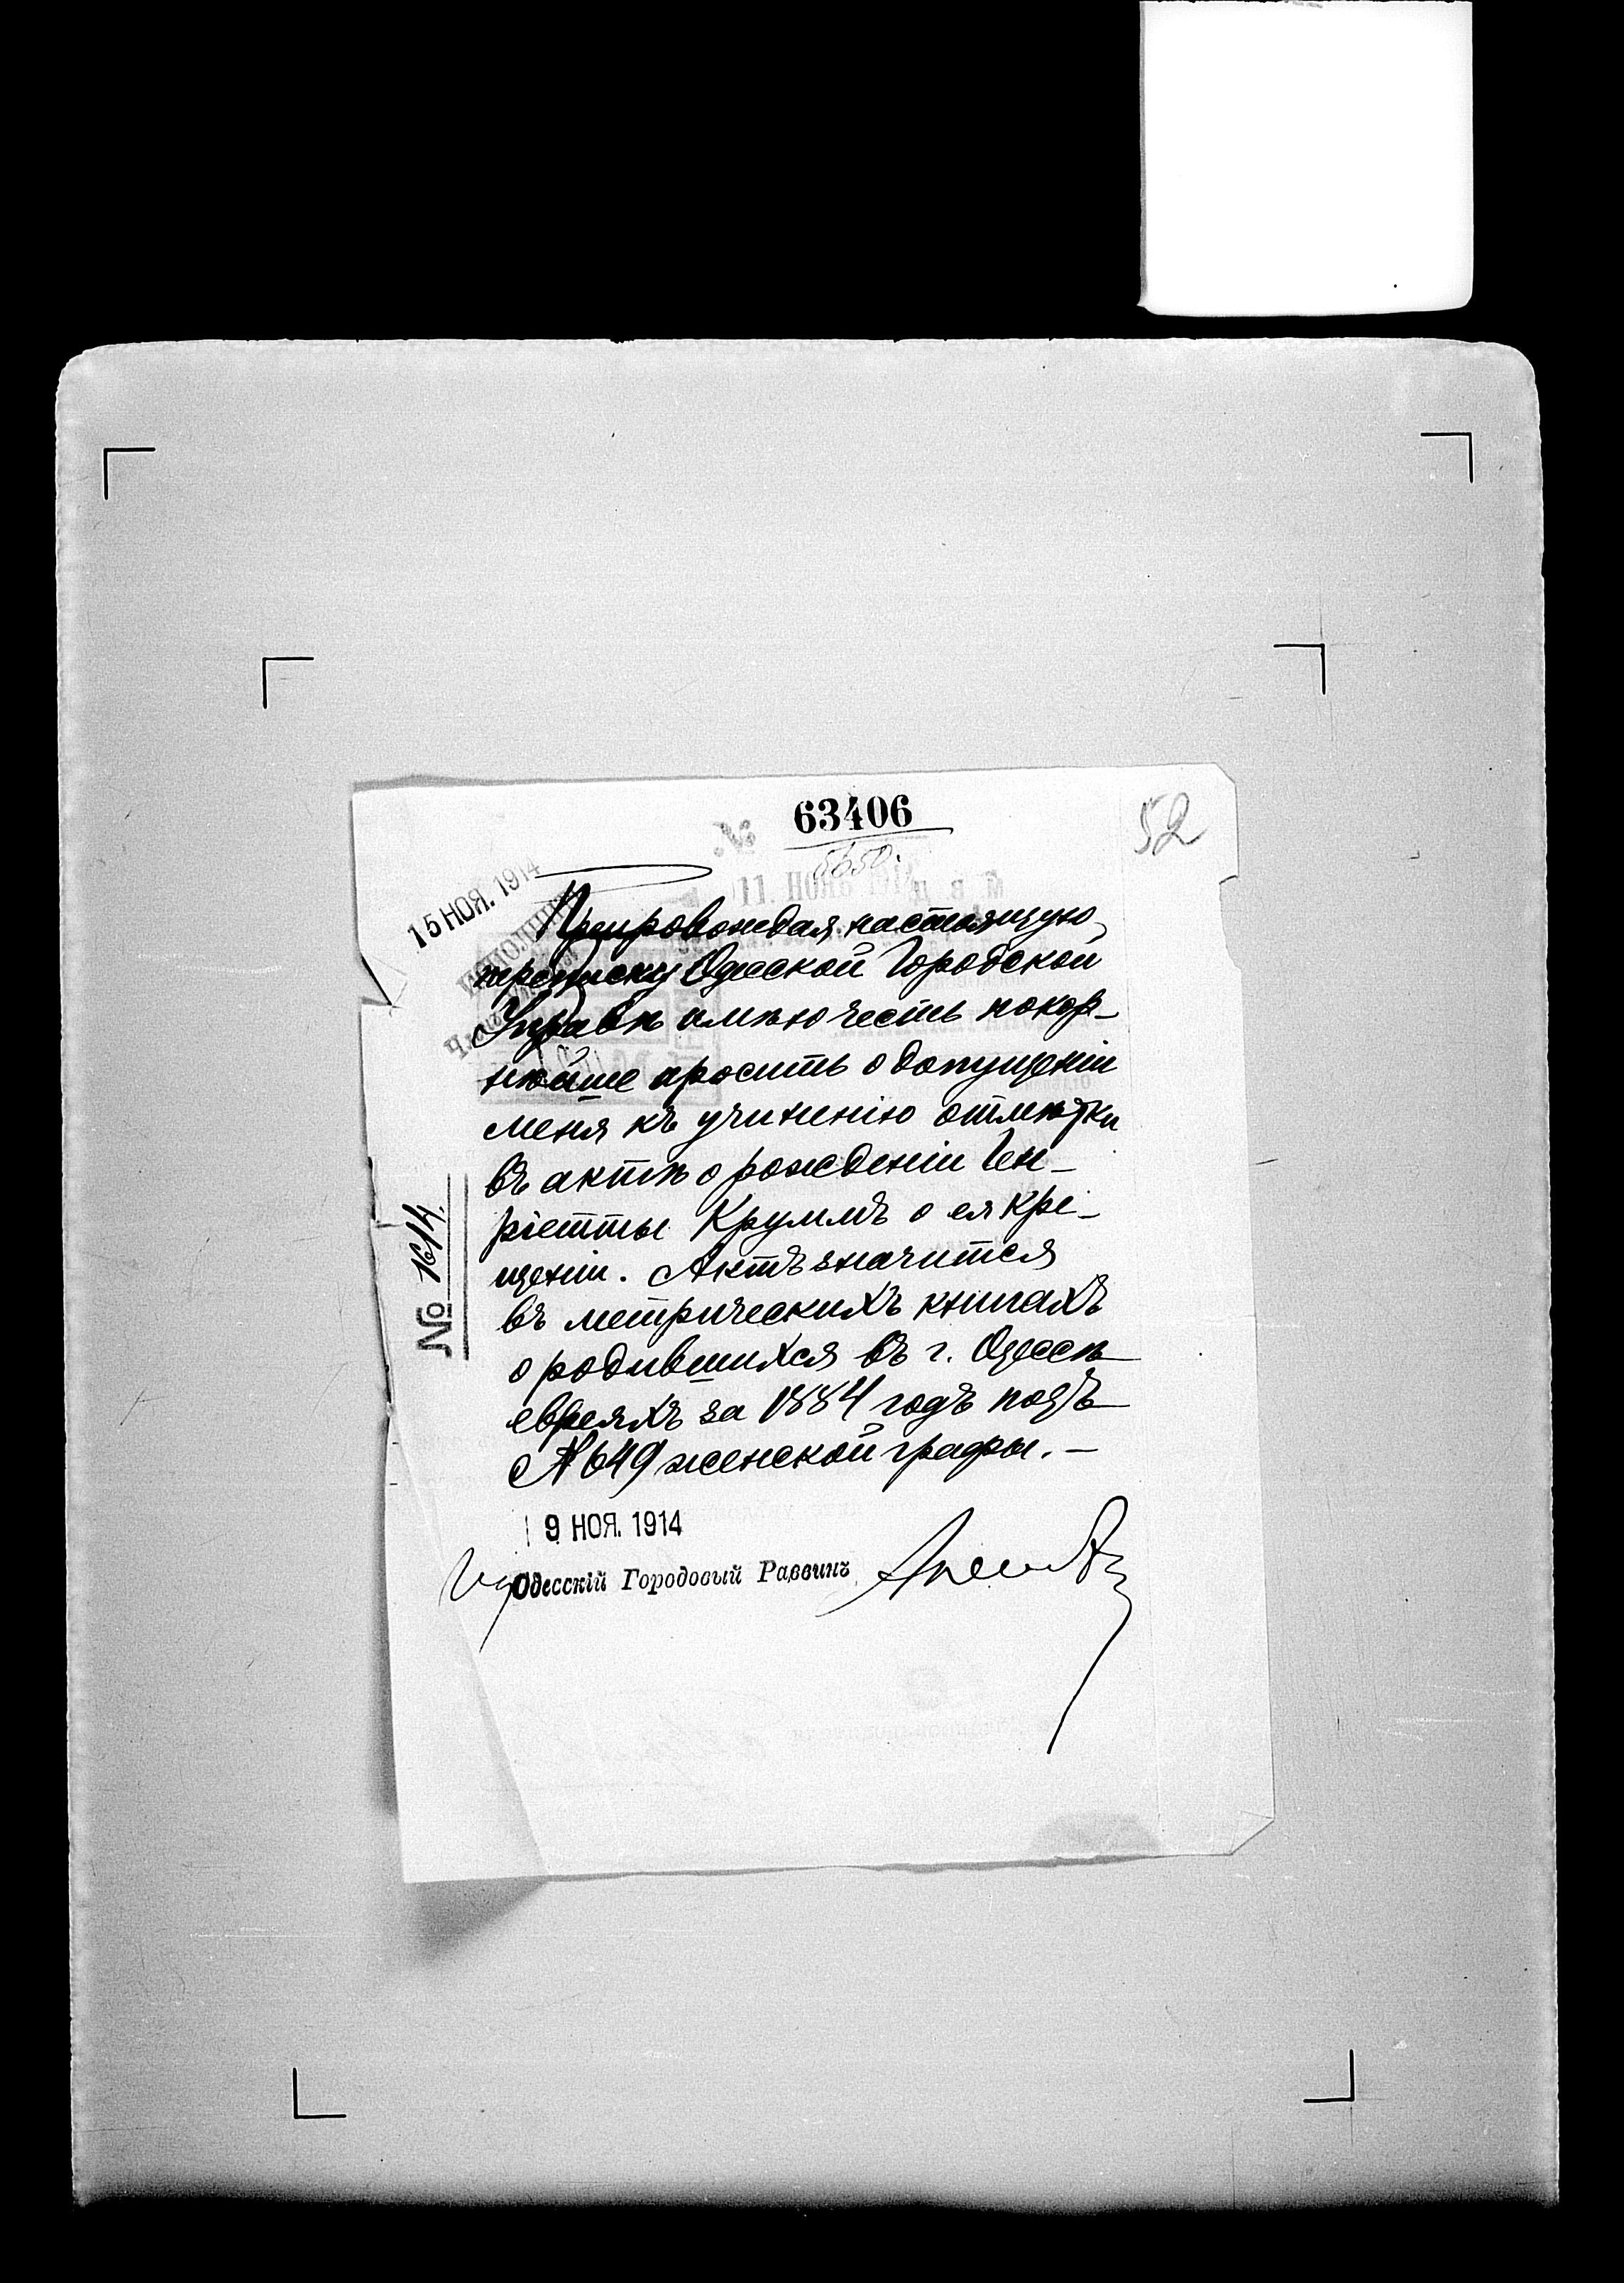 63406
52
№
5650.
15 НОЯ. 1914
Препровождая настоящую
переписку Одесской Городской
Управѣ имѣю честь покор-
нѣйше просить о допущеніи
меня къ учиненію отмѣтки
въ актѣ о рожденіи Ген-
ріетты Круммъ о ея кре-
щеніи. Актъ значится
въ метрическихъ книгахъ
о родившихся въ г. Одессѣ
евреяхъ за 1884 годъ подъ
№ 649 женской графы. —
№ 1614.
9 НОЯ. 1914
Одесскій Городовый Раввинъ